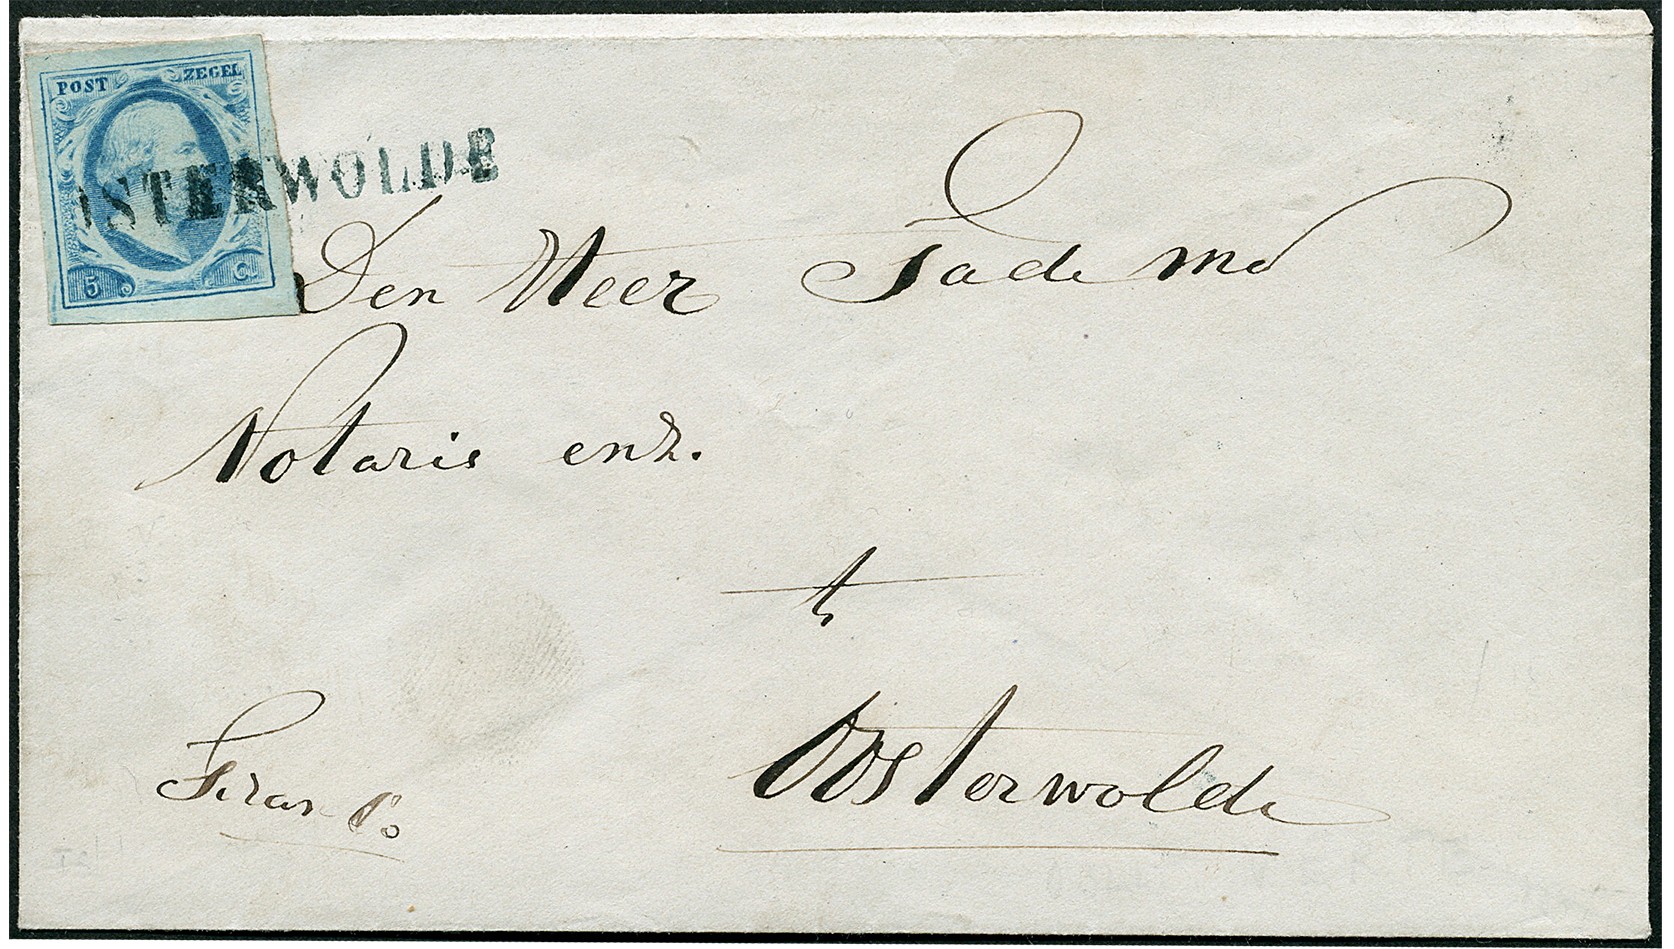 POST ZEGEL
5 C
OSTERWOLDE
Den Heer Fadema
Notaris enz.
te
Oosterwolde
Franco